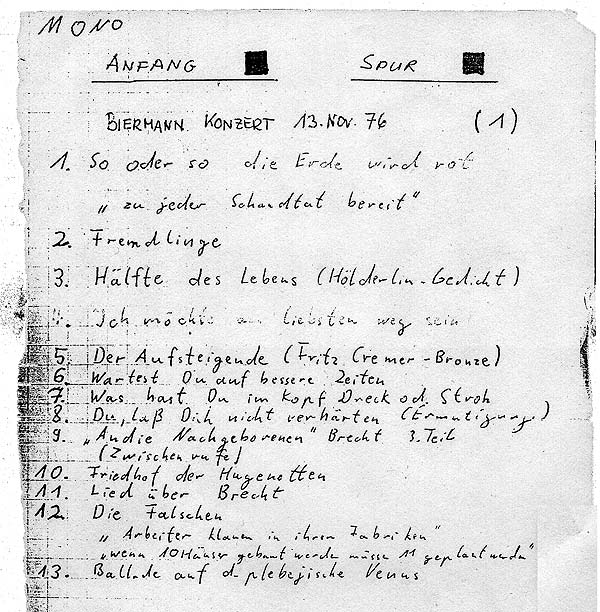 MONO
ANFANG SPUR
BIERMANN KONZERT 13. NOV. 76 (1)
1. So oder so die Erde wird rot
„zu jeder Schandtat bereit“
2. Fremdlinge
3. Hälfte des Lebens (Hölderlin-Gedicht)
4. Ich möchte am liebsten weg sein
5. Der Aufsteigende (Fritz Cremer-Bronze)
6. Wartest Du auf bessere Zeiten
7. Was hast Du im Kopf Dreck od. Stroh
8. Du, laß Dich nicht verhärten (Ermutigung)
9. „An die Nachgeborenen“ Brecht 3. Teil
(Zwischenrufe)
10. Friedhof der Hugenotten
11. Lied über Brecht
12. Die Falschen
„Arbeiter klauen in ihren Fabriken“
„wenn 10 Häuser gebaut werden müssen 11 geplant werden“
13. Ballade auf d. plebejische Venus